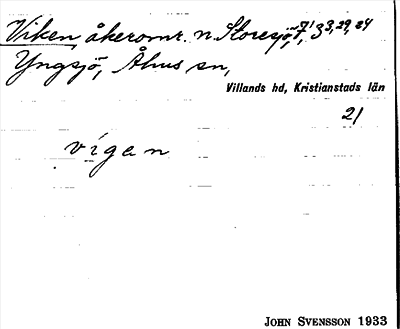 Viken, åkeromr. n. Storesjö,
Yngsjö, Åhus sn,
Villands hd, Kristianstads län
21
vigen
JOHN SVENSSON 1933